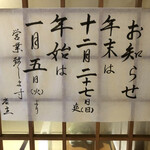 お知らせ
年末は
十二月二十七(日)迄
年始は
一月五日(火)より
営業致します
店主